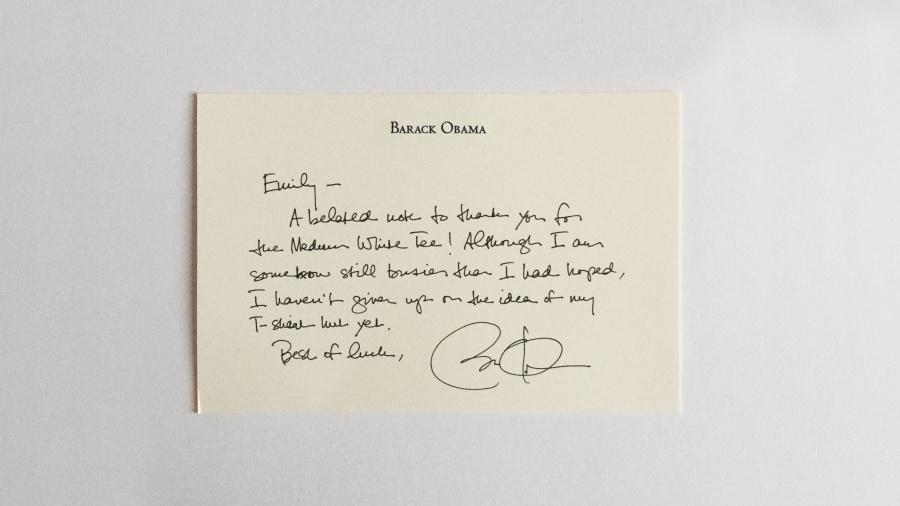 BARACK OBAMA
Emily —
A belated note to thank you for
the Medium White Tee! Although I am
somehow still busier than I had hoped,
I haven't given up on the idea of my
T-shirt hut yet.
Best of luck,